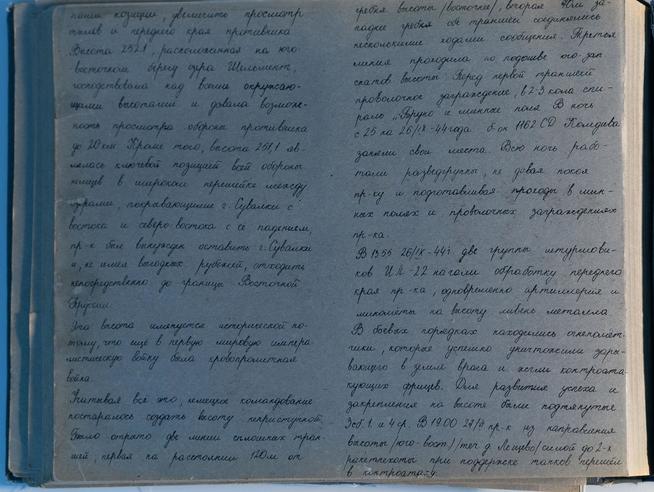 наши позиции, увеличить просмотр
тылов и переднего края противника
Высота 252.1, расположенная на юго
восточном берегу озера Шельмент,
господствовала над всеми окружаю-
щими высотами и давала возмож-
ность просмотра обороны противника
до 20 км Кроме того, высота 251,1 яв-
лялась ключевой позицией всей обороны
немцев в широком перешейке между
озёрами, прикрывающими г. Сувалки с
востока и северо-востока с её падением,
пр-к был вынужден оставить г. Сувалки
и, не имея выгодных рубежей, отходить
непосредственно до границы Восточной
Пруссии.
Эта высота является исторической по-
тому, что ещё в первую мировую импери-
листическую войну была кровопролитная
война.
Учитывая все это, немецкое командование
постаралось создать высоту неприступной.
Было открыто две линии сплошных тран-
шей, первая на расстоянии 120м от
гребня высоты /восточнее/, вторая 40м за-
паднее гребня обе траншеи соединялись
несколькими ходами сообщения. Третья
линия проходила по подошве юго-зап
скатов высоты. Перед первой траншеей
проволочное заграждение, в 2-3 кола спи-
раль „Бруно и минные поля В ночь
с 25 на 26/IX-44 года 1162 СП
заняли свои места. Всю ночь рабо-
тали разведгруппы, не давая покоя
пр-ку и подготавливая проходы в мин-
ных полях и проволочных заграждениях
пр-ка.
В 13 55 26/IX-44г две группы штурмови-
ков ИЛ-22 начали обработку переднего
края пр-ка, одновременно артиллерия и
миномёты на высоту ливень металла
В боевых порядках находились огнемёт-
чики, которые успешно уничтожали зары-
вающего в земле врага и жгли контрата-
кующих фрицев. Для развития успеха и
закрепления на высоте были подтянуты
3сб. 1 и 4 ср. В 19.00 пр-к из направления
высоты /юго-вост/ д. Лещево/ силой до 2-х
рот пехоты при поддержке танков перешёл
в контратаку.